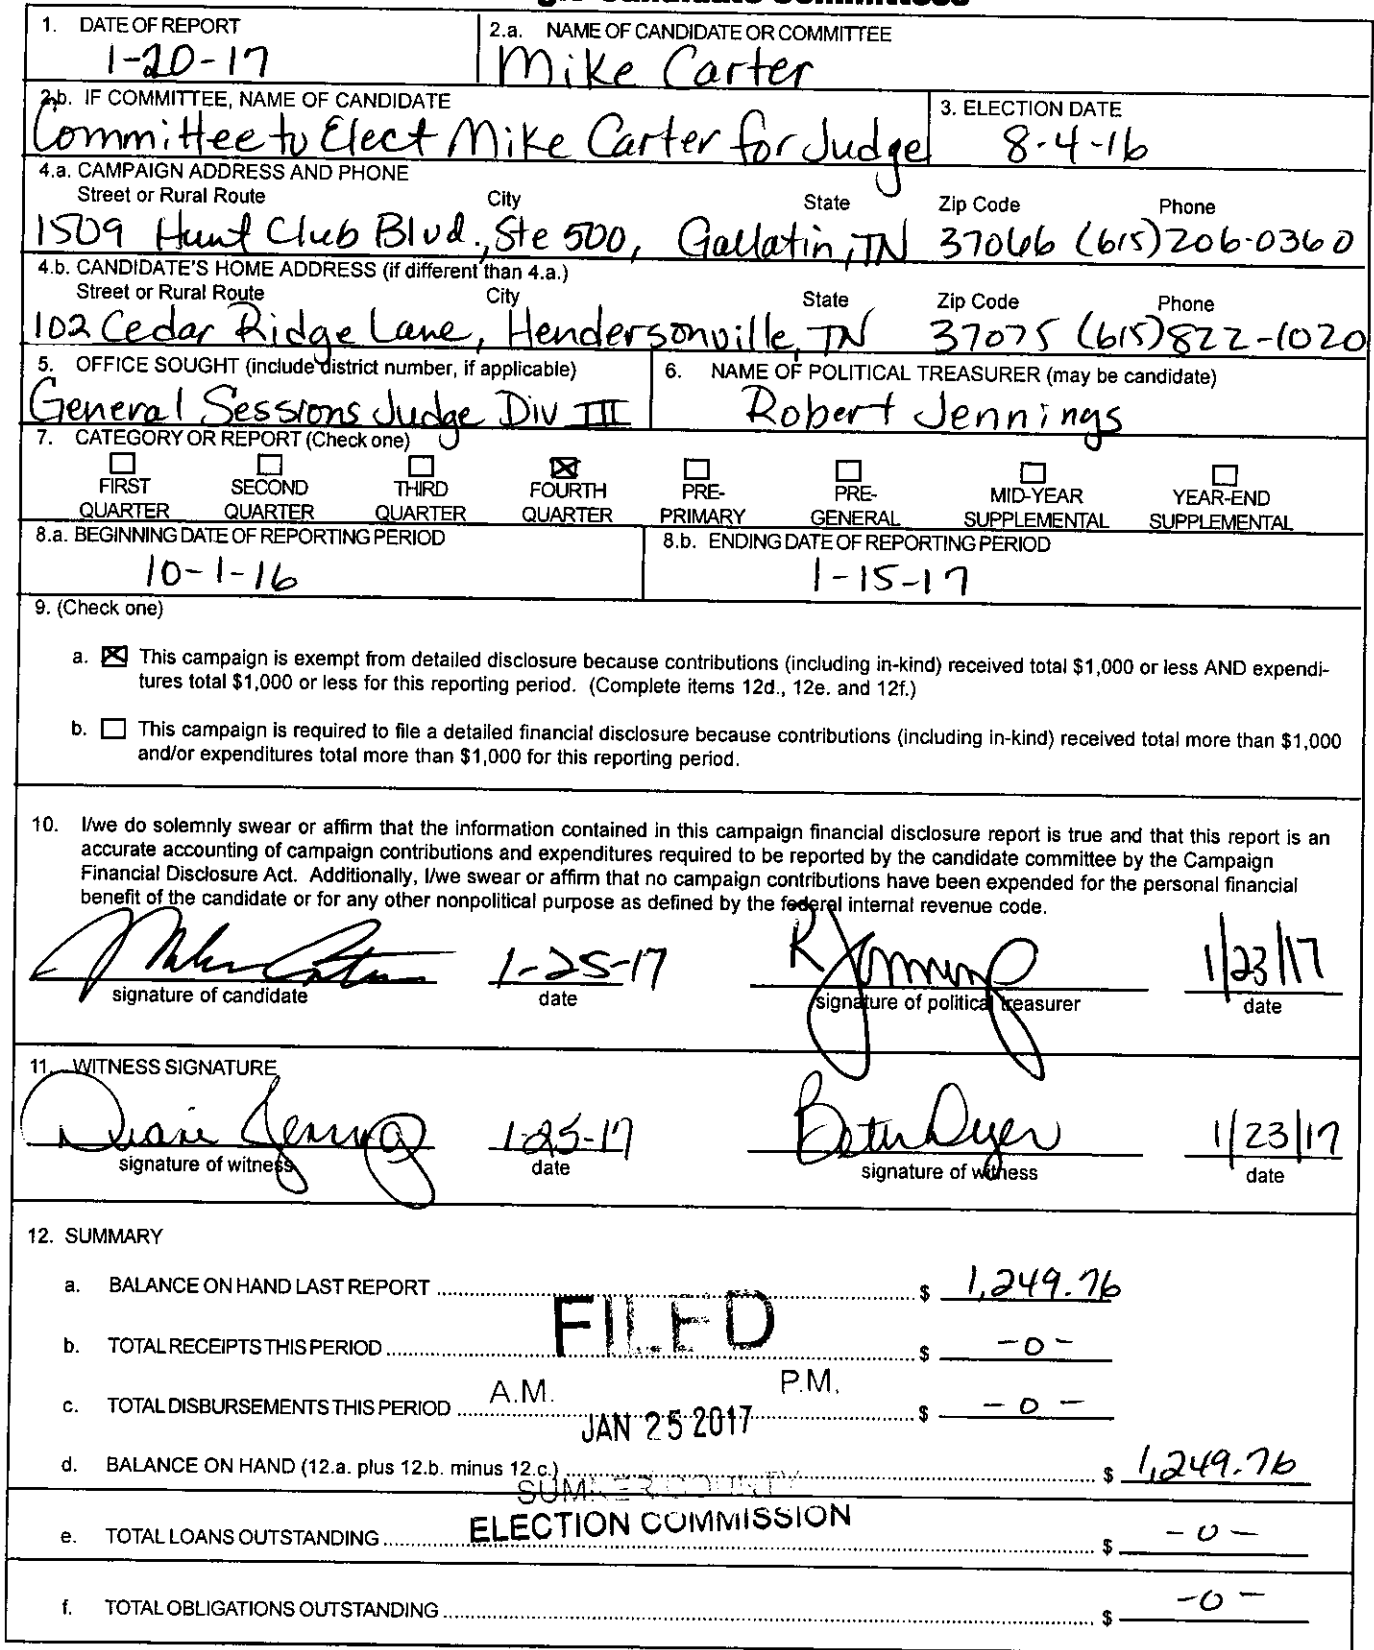 Candidate Committees
1. DATE OF REPORT
1-20-17
2.a. NAME OF CANDIDATE OR COMMITTEE
Mike Carter
2.b. IF COMMITTEE, NAME OF CANDIDATE
Committee to Elect Mike Carter for Judge
3. ELECTION DATE
8-4-16
4.a. CAMPAIGN ADDRESS AND PHONE
Street or Rural Route City State Zip Code Phone
1509 Hunt Club Blvd., Ste 500, Gallatin, TN 37066 (615)206-0360
4.b. CANDIDATE'S HOME ADDRESS (if different than 4.a.)
Street or Rural Route City State Zip Code Phone
102 Cedar Ridge Lane, Hendersonville, TN 37075 (615)822-1020
5. OFFICE SOUGHT (include district number, if applicable)
General Sessions Judge Div III
6. NAME OF POLITICAL TREASURER (may be candidate)
Robert Jennings
7. CATEGORY OR REPORT (Check one)
FIRST QUARTER
SECOND QUARTER
THIRD QUARTER
FOURTH QUARTER
PRE-PRIMARY
PRE-GENERAL
MID-YEAR SUPPLEMENTAL
YEAR-END SUPPLEMENTAL
8.a. BEGINNING DATE OF REPORTING PERIOD
10-1-16
8.b. ENDING DATE OF REPORTING PERIOD
1-15-17
9. (Check one)
a. This campaign is exempt from detailed disclosure because contributions (including in-kind) received total $1,000 or less AND expendi-
tures total $1,000 or less for this reporting period. (Complete items 12d., 12e. and 12f.)
b. This campaign is required to file a detailed financial disclosure because contributions (including in-kind) received total more than $1,000
and/or expenditures total more than $1,000 for this reporting period.
10. I/we do solemnly swear or affirm that the information contained in this campaign financial disclosure report is true and that this report is an
accurate accounting of campaign contributions and expenditures required to be reported by the candidate committee by the Campaign
Financial Disclosure Act. Additionally, I/we swear or affirm that no campaign contributions have been expended for the personal financial
benefit of the candidate or for any other nonpolitical purpose as defined by the federal internal revenue code.
1-25-17 R Jennings 1/23/17
signature of candidate date signature of political treasurer date
11. WITNESS SIGNATURE
1-25-17 Dyer 1/23/17
signature of witness date signature of witness date
12. SUMMARY
a. BALANCE ON HAND LAST REPORT $ 1,249.76
FILED
b. TOTAL RECEIPTS THIS PERIOD $ -0-
A.M. P.M.
c. TOTAL DISBURSEMENTS THIS PERIOD $ -0-
JAN 25 2017
d. BALANCE ON HAND (12.a. plus 12.b. minus 12.c.) $ 1,249.76
SUMNER COUNTY
ELECTION COMMISSION
e. TOTAL LOANS OUTSTANDING $ -0-
f. TOTAL OBLIGATIONS OUTSTANDING $ -0-